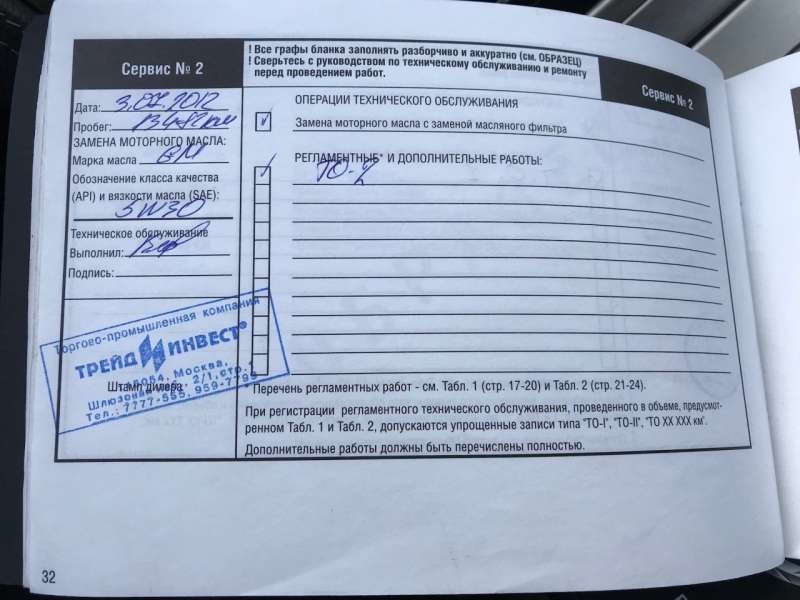 Сервис № 2
! Все графы бланка заполнять разборчиво и аккуратно (см. ОБРАЗЕЦ)
! Сверьтесь с руководством по техническому обслуживанию и ремонту
перед проведением работ.
Сервис № 2
Дата: 3.07.2012
Пробег: 13482 км
ЗАМЕНА МОТОРНОГО МАСЛА:
Марка масла GM
Обозначение класса качества
(API) и вязкости масла (SAE):
5W30
Техническое обслуживание
Выполнил:
Подпись:
ОПЕРАЦИИ ТЕХНИЧЕСКОГО ОБСЛУЖИВАНИЯ
Замена моторного масла с заменой масляного фильтра
РЕГЛАМЕНТНЫЕ* И ДОПОЛНИТЕЛЬНЫЕ РАБОТЫ:
ТО-2
Торгово-промышленная компания
ТРЕЙД ИНВЕСТ®
Москва,
Шлюзовая 2/1, стр. 1
Тел.: 7777-555, 959-7799
Штамп дилера
Перечень регламентных работ - см. Табл. 1 (стр. 17-20) и Табл. 2 (стр. 21-24).
При регистрации регламентного технического обслуживания, проведенного в объеме, предусмот-
ренном Табл. 1 и Табл. 2, допускаются упрощенные записи типа "ТО-I", "ТО-II", "ТО XX XXX км".
Дополнительные работы должны быть перечислены полностью.
32